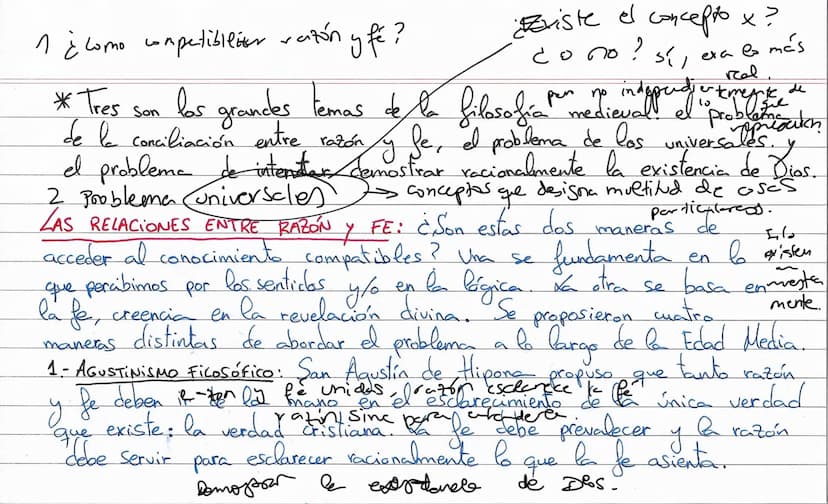 1 ¿Como compatibilizar razón y fé?
¿Existe el concepto x?
¿o no? sí, era lo más
real
pero no independientemente de
lo que
representan.
* Tres son los grandes temas de la filosofía medieval: el problema
de la conciliación entre razón y fe, el problema de los universales y
el problema de intentar demostrar racionalmente la existencia de Dios.
2 Problema universales → conceptos que designa multitud de cosas
particulares.
LAS RELACIONES ENTRE RAZÓN Y FE: ¿Son estas dos maneras de
acceder al conocimiento compatibles? Una se fundamenta en lo
que percibimos por los sentidos y/o en la lógica. La otra se basa en
la fe, creencia en la revelación divina. Se propusieron cuatro
maneras distintas de abordar el problema a lo largo de la Edad Media.
Solo
existen
en
nuestra
mente.
1.- AGUSTINISMO FILOSÓFICO: San Agustín de Hipona propuso que tanto razón
fé unidas, razón esclarece la fé
y fe deben de la mano en el esclarecimiento de la única verdad
razón sirve para entender
que existe: la verdad cristiana. La fe debe prevalecer y la razón
debe servir para esclarecer racionalmente lo que la fe asienta.
Demostrar la existencia de Dios.